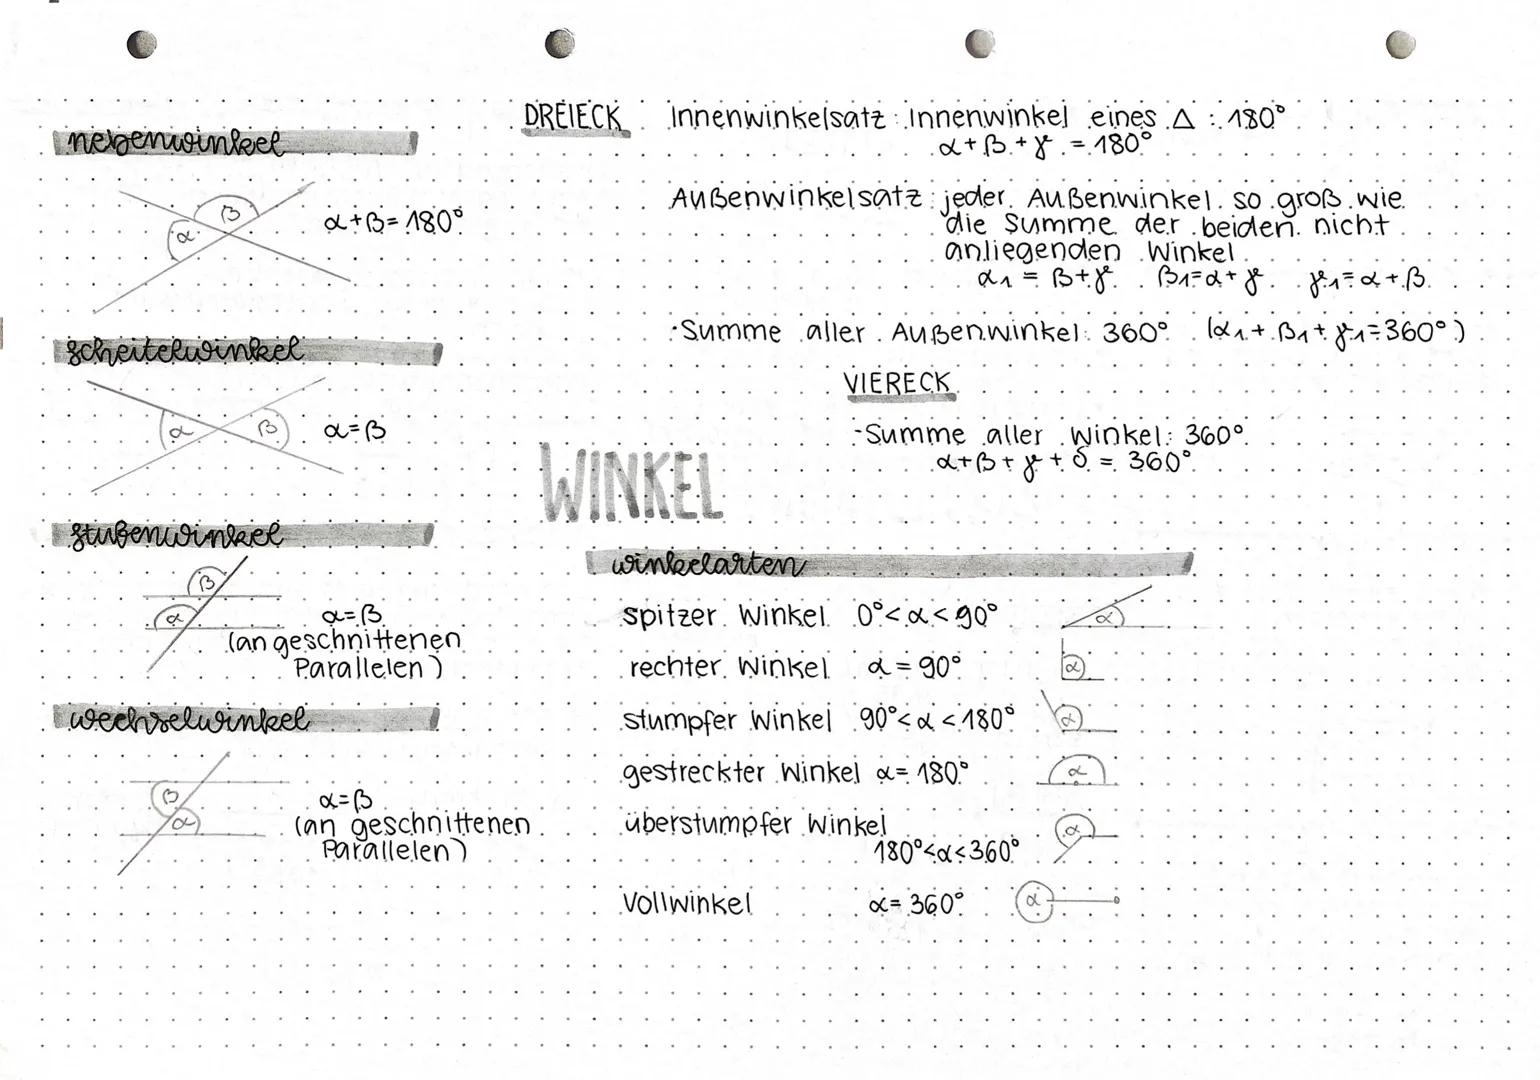 nebenwinkel
β
α
α+β=180°
scheitelwinkel
α
β
α=β
stufenwinkel
β
α
α=β
(an geschnittenen
Parallelen)
wechselwinkel
β
α
α=β
(an geschnittenen
Parallelen)
DREIECK
Innenwinkelsatz: Innenwinkel eines Δ: 180°
α+β+γ=180°
Außenwinkelsatz: jeder Außenwinkel so groß wie
die Summe der beiden nicht
anliegenden Winkel
α₁ = β+γ β₁=α+γ γ₁=α+β
·Summe aller Außenwinkel: 360° (α₁+β₁+γ₁=360°)
VIERECK
-Summe aller Winkel: 360°
α+β+γ+δ = 360°
WINKEL
winkelarten
spitzer Winkel 0°<α<90°
α
rechter Winkel α=90°
α
stumpfer Winkel 90°<α<180°
α
gestreckter Winkel α=180°
α
überstumpfer Winkel
180°<α<360°
α
Vollwinkel α=360°
α